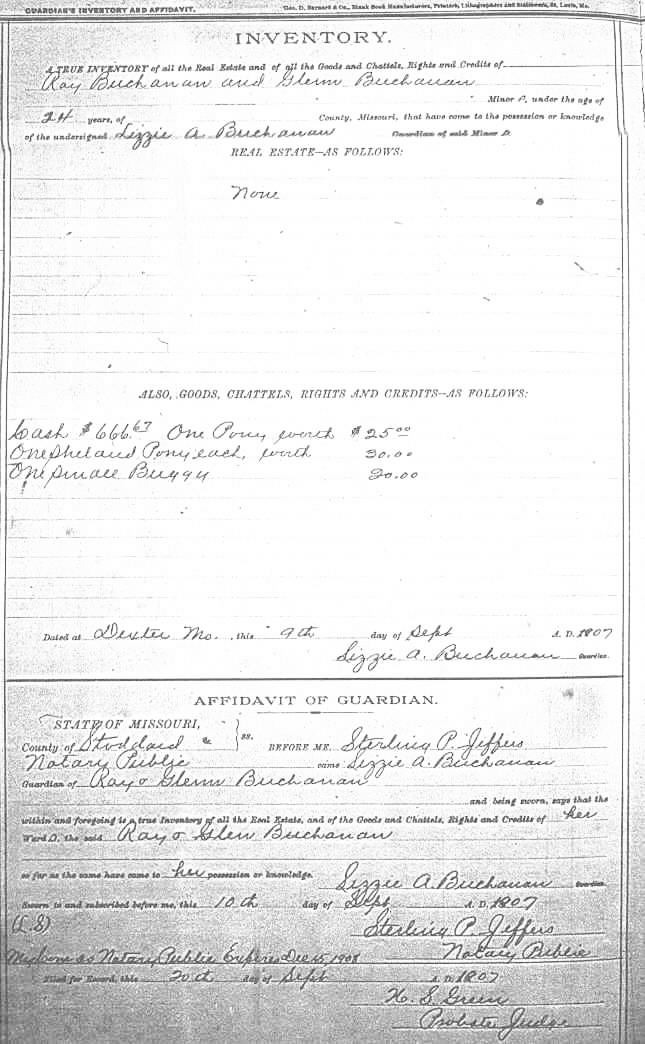 GUARDIAN'S INVENTORY AND AFFIDAVIT.
Geo. D. Barnard & Co., Blank Book Manufacturers, Printers, Lithographers and Stationers, St. Louis, Mo.
INVENTORY.
A TRUE INVENTORY of all the Real Estate and of all the Goods and Chattels, Rights and Credits of
Ray Buchanan and Glenn Buchanan
Minor s, under the age of
21 years, of County, Missouri, that have come to the possession or knowledge
of the undersigned Lizzie A Buchanan Guardian of said Minor s.
REAL ESTATE—AS FOLLOWS:
None
ALSO, GOODS, CHATTELS, RIGHTS AND CREDITS—AS FOLLOWS:
Cash $666.67 One Pony worth $25.00
One Shetland Pony each, worth 30.00
One Small Buggy 20.00
Dated at Dexter Mo. this 9th day of Sept A. D. 1907
Lizzie A. Buchanan Guardian.
AFFIDAVIT OF GUARDIAN.
STATE OF MISSOURI,
County of Stoddard ss. BEFORE ME, Sterling P. Jeffers
Notary Public came Lizzie A. Buchanan
Guardian of Ray & Glenn Buchanan
and being sworn, says that the
within and foregoing is a true Inventory of all the Real Estate, and of the Goods and Chattels, Rights and Credits of her
Ward s, the said Ray & Glen Buchanan
so far as the same have come to her possession or knowledge.
Lizzie A. Buchanan Guardian
Sworn to and subscribed before me, this 10th day of Sept A. D. 1907
(L S) Sterling P. Jeffers
My Com as Notary Public Expires Dec 15, 1908 Notary Public
Filed for Record, this 20th day of Sept A. D. 1907
Green
Probate Judge